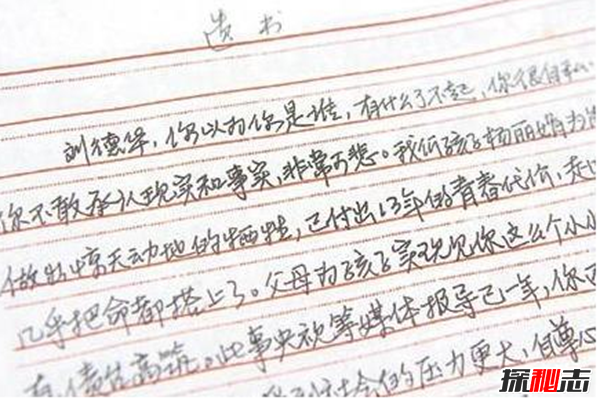 遗书
刘德华,你以为你是谁,有什么了不起,你很自私
你不敢承认现实和事实,非常可悲。我低孩子杨丽娟为
做出惊天动地的牺牲,已付出13年的青春代价,走
几乎把命都搭上了。父母为孩子实现见你这么个小小
高筑。此事央视等媒体报导已一年,你
的压力更大,自尊心
探秘志